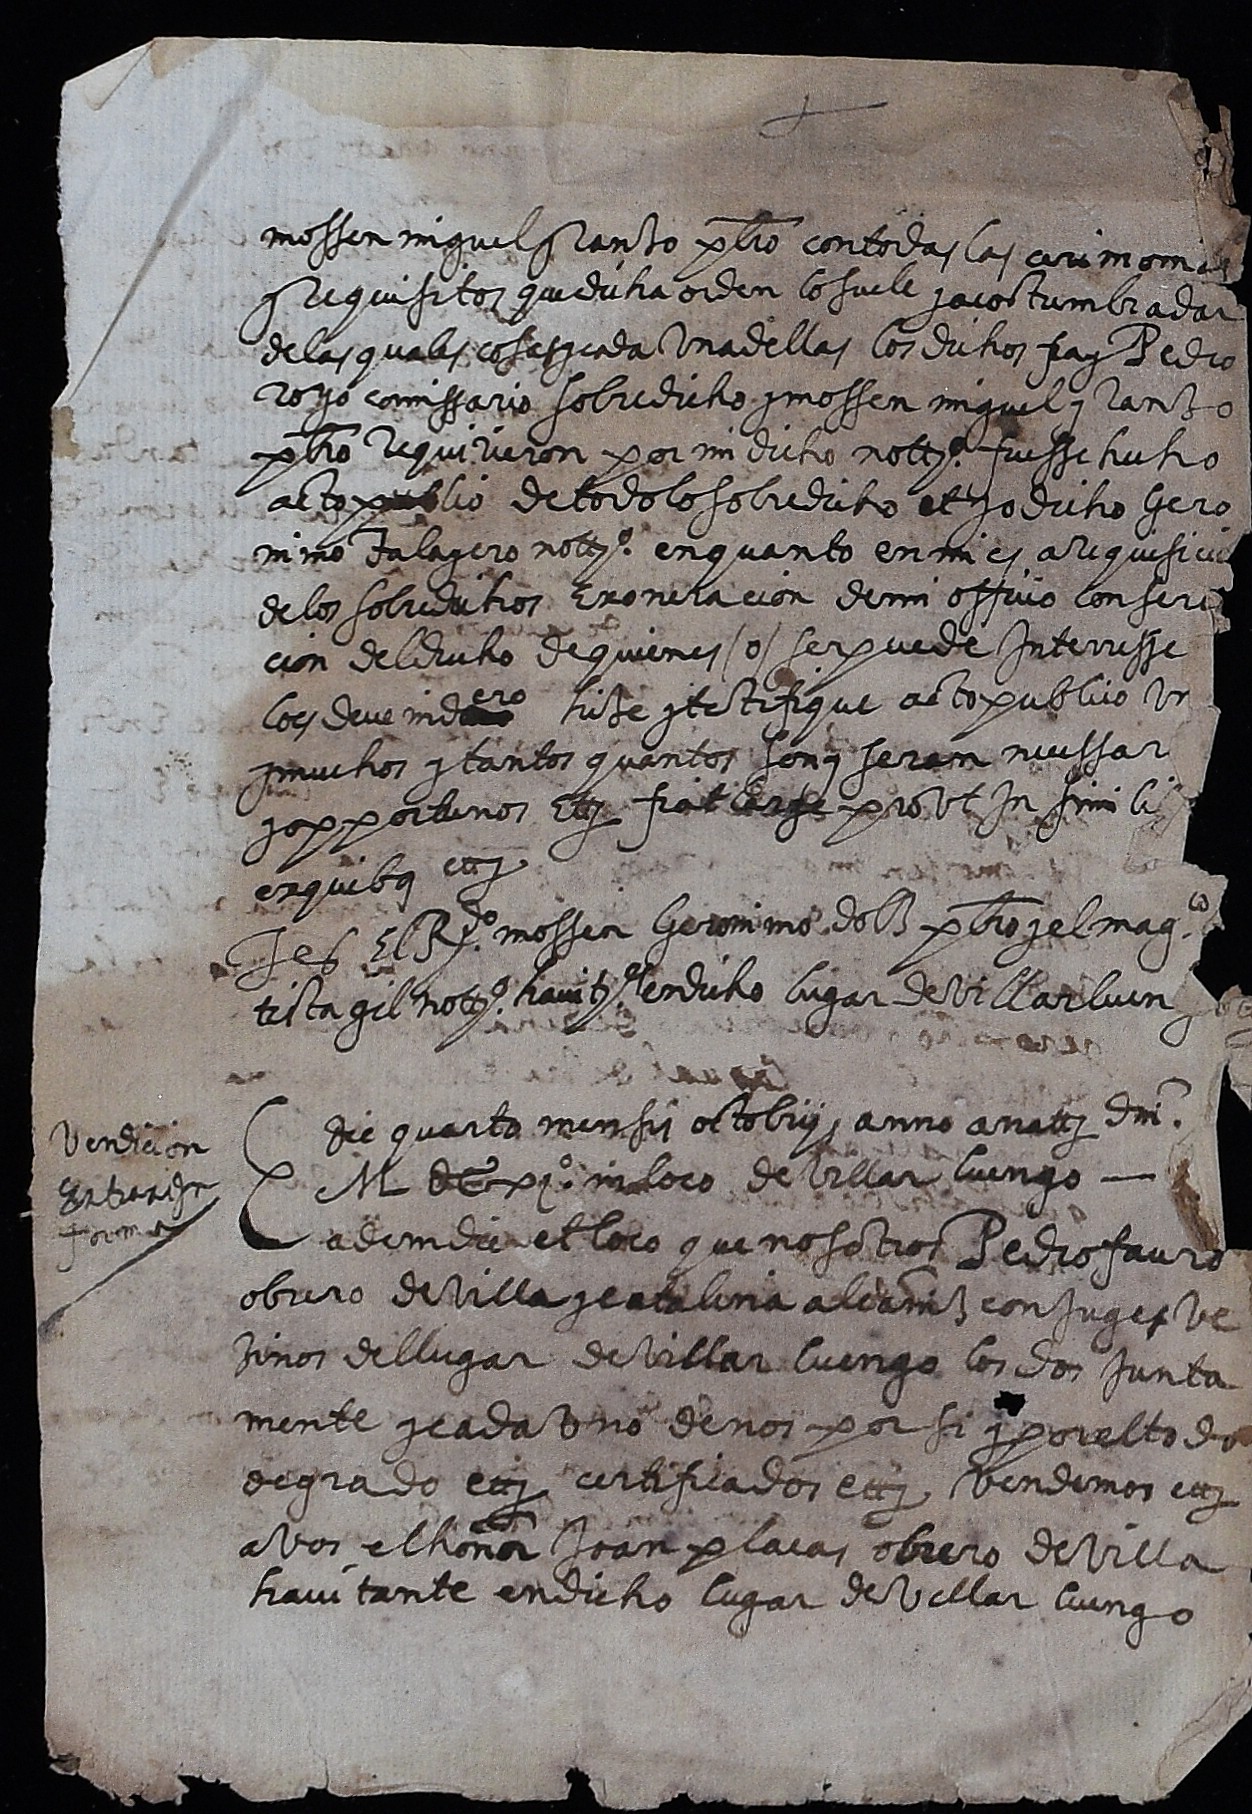 mossen miguel yranzo pbro con todas las cerimonias
y requisitos que dicha orden lo suele y acostumbra dar
de las quales cosas y cada una dellas los dichos fray Pedro
royo comissario sobredicho y mossen miguel yranzo
pbro requirieron por mi dicho notto. fuesse hecho
acto publico de todo lo sobredicho et yo dicho Gero
nimo Falaguero notto. en quanto en mi es a requisicio
de los sobredichos Exoneracion de mi officio conserva
cion del drecho de quienes /o/ ser puede Interesse
loes deve in hize y testifique acto publico un
y muchos y tantos quantos son y seran necessar
y opportunos Ettz fiat large prout In simili
ex quibus ettz
Tes El Rdo. mossen Geronimo dolz pbro y el magco
tista gil notto. havitte. en dicho lugar de Villarluengo
Vendicion
En
forma
die quarto mensis octobris anno a natte dni.
M DC xjo. in loco de Villar luengo —
adem die et loco que nosotros Pedro fauro
obrero de Villa y catalina alcaniz conjuges Ve
zinos del lugar de Villar luengo los dos Junta
mente y cada uno de nos por si y por el todo
de grado ettz certificados ettz vendemos ettz
a vos el honor Joan placas obrero de Villa
havitante en dicho lugar de Villar luengo